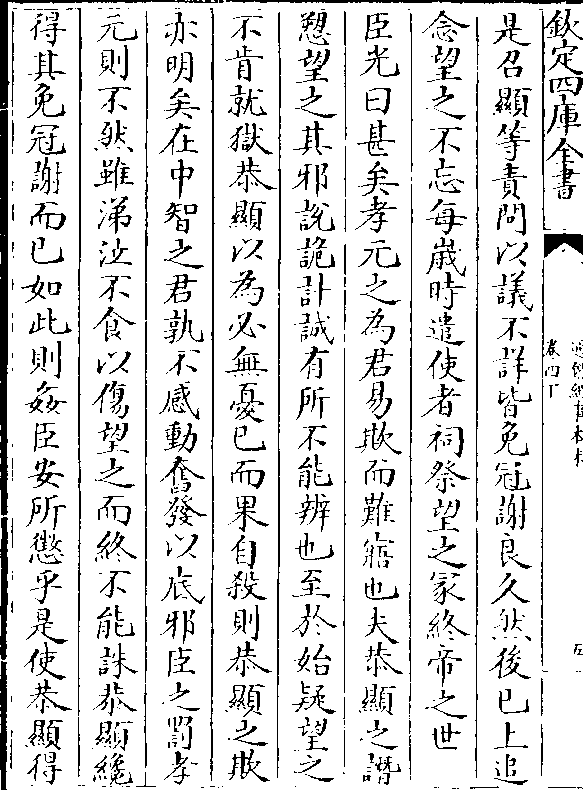 欽定四庫全書
卷四下
是召顯等責問以議不詳皆免冠謝良久然後已上追
念望之不忘每歲時遣使者祠祭望之冢終帝之世
臣光曰甚矣孝元之為君易欺而難寤也夫恭顯之譖
愬望之其邪說詭計誠有所不能辨也至於始疑望之
不肯就獄恭顯以為必無憂已而果自殺則恭顯之欺
亦明矣在中智之君孰不感動奮發以底邪臣之罰孝
元則不然雖涕泣不食以傷望之而終不能誅恭顯纔
得其免冠謝而已如此則姦臣安所懲乎是使恭顯得